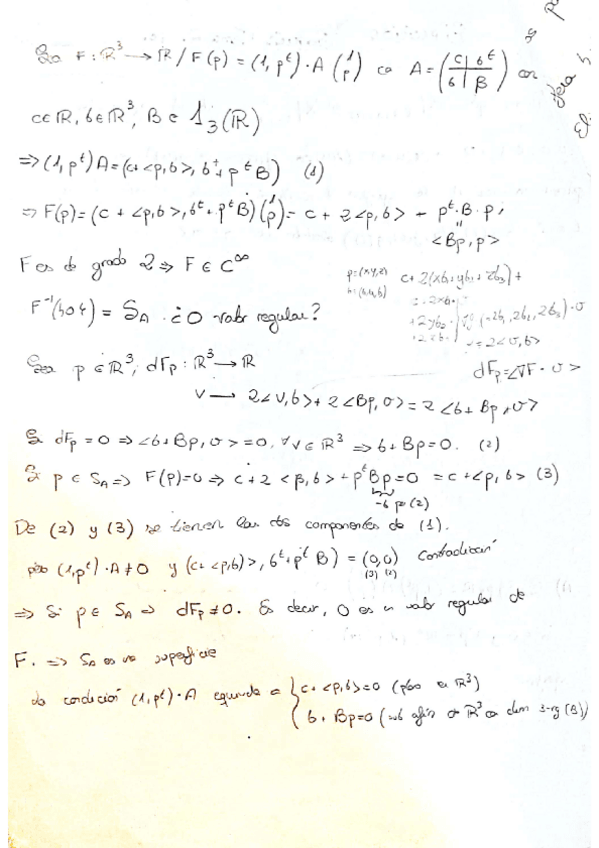 Sea F: ℝ³ → ℝ / F(p) = (1, pᵗ)·A (1/p) con A = (c | bᵗ / b | B) con
c∈ℝ, b∈ℝ³, B ∈ 1₃(ℝ)
⇒ (1, pᵗ)A = (c + <p,b>, bᵗ + pᵗB) (1)
⇒ F(p) = (c + <p,b>, bᵗ + pᵗB)(1/p) = c + 2<p,b> + pᵗ·B·p,
<Bp, p>
F es de grado 2 ⇒ F ∈ C^∞
p=(x,y,z) c + 2(xb₁ + yb₂ + zb₃) +
F⁻¹({0}) = S_A ¿0 valor regular?
(2b₁, 2b₂, 2b₃)·v
= 2<v,b>
Sea p ∈ ℝ³, dFp: ℝ³ → ℝ
dFp = <∇F · v>
v → 2<v,b> + 2<Bp,v> = 2<b + Bp, v>
Si dFp = 0 ⇒ <b + Bp, v> = 0, ∀v∈ℝ³ ⇒ b + Bp = 0. (2)
Si p ∈ S_A ⇒ F(p) = 0 ⇒ c + 2<p,b> + pᵗBp = 0 = c + <p,b> (3)
-b por (2)
De (2) y (3) se tienen las dos componentes de (1).
pero (1,pᵗ)·A ≠ 0 y (c + <p,b>, bᵗ + pᵗB) = (0,0) Contradicción
(3) (2)
⇒ Si p ∈ S_A ⇒ dFp ≠ 0. Es decir, 0 es un valor regular de
F. ⇒ S_A es una superficie
La condición (1,pᵗ)·A equivale a { c + <p,b> = 0 (plano en ℝ³)
b + Bp = 0 (sub afín de ℝ³ de dim 3-rg(B))